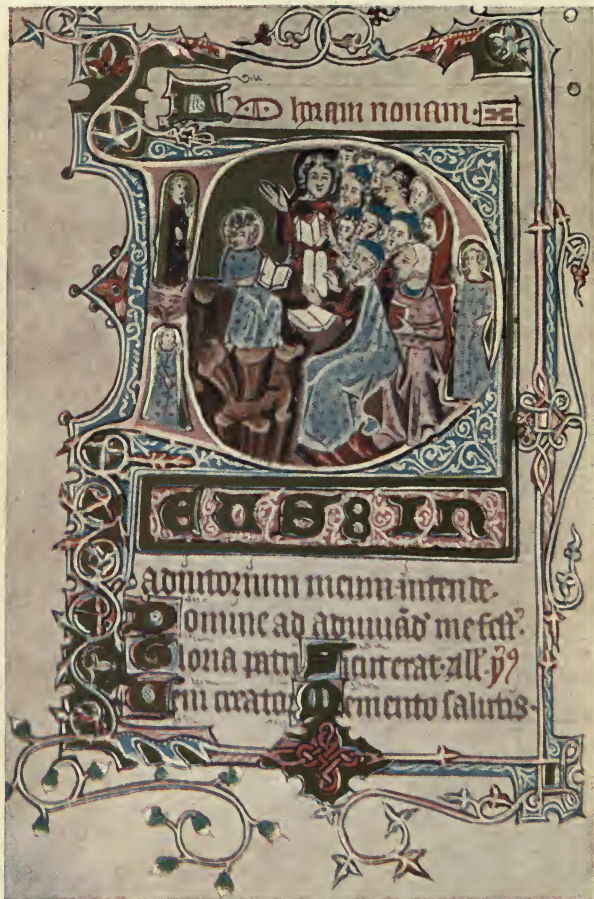 Ad horam nonam.
EUS IN
adiutorium meum intende.
Domine ad adiuuād' me fest'.
Gloria patri Sicut erat. All'. p̄s
Ueni creator Memento salutis.